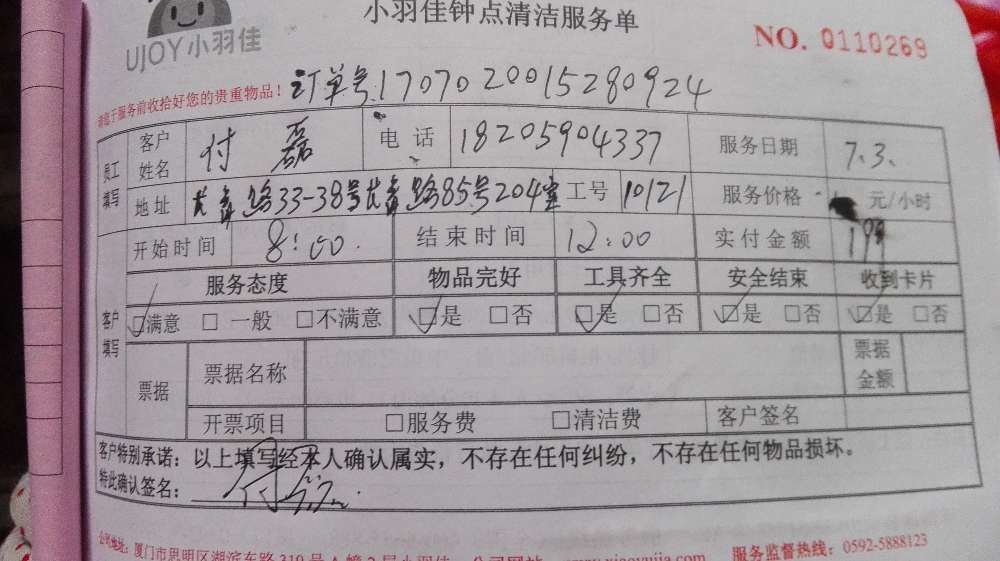 小羽佳钟点清洁服务单
UJOY小羽佳
NO. 0110269
请您于服务前收拾好您的贵重物品! 订单号:1707020015280924
员工填写 客户姓名 付磊 电话 18205904337 服务日期 7.3.
地址 路33-38号 路85号204室 工号 10121 服务价格 元/小时
开始时间 8:00. 结束时间 12:00 实付金额 199
服务态度 物品完好 工具齐全 安全结束 收到卡片
客户填写 □满意 □一般 □不满意 □是 □否 □是 □否 □是 □否 □是 □否
票据 票据名称 票据金额
开票项目 □服务费 □清洁费 客户签名
客户特别承诺：以上填写经本人确认属实，不存在任何纠纷，不存在任何物品损坏。
特此确认签名：
公司地址：厦门市思明区湖滨东路319号A幢2层小羽佳 公司网站 www.xiaoyujia.com 服务监督热线：0592-5888123